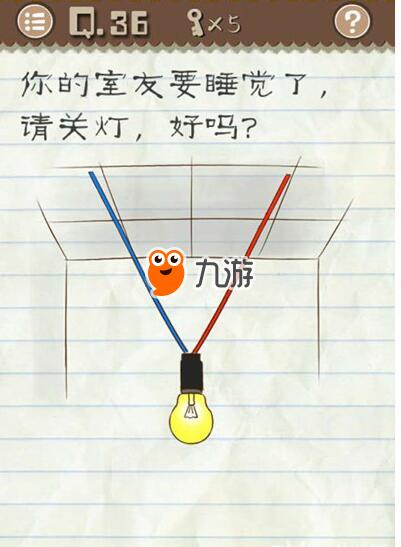 Q.36 ×5 ?
你的室友要睡觉了，
请关灯，好吗？
九游